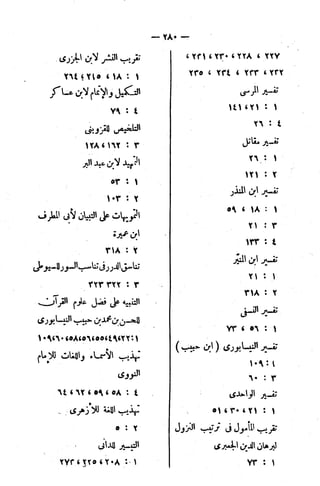 — ٢٨٠ —
٢٢٧ ، ٢٢٨ ، ٢٣٠ ، ٢٣١ ،
٢٣٢ ، ٢٣٣ ، ٢٣٤ ، ٢٣٥
تفسير المرسى
١ : ٢١ ، ١٤١
٤ : ٢٦
تفسير مقاتل
١ : ٢٦
٢ : ١٢١
تفسير ابن المنذر
١ : ١٨ ، ٥٩
٣ : ٢١
٤ : ١٣٣
تفسير ابن المنير
١ : ٢١
٢ : ٣١٨
تفسير النسفى
١ : ٥٦ ، ٧٣
تفسير النيسابورى ( ابن حبيب )
١ : ١٠٩
٣ : ٦٠
تفسير الواحدى
١ : ٢١ ، ٣٠ ، ٥١
تقريب المأمول فى ترتيب النزول
لبرهان الدين الجعبرى
١ : ٧٣
تقريب النشر لابن الجزرى
١ : ١٨ ، ٢١٥ ؛ ٢٦٤
التكميل والإتمام لابن عساكر
٤ : ٧٩
التلخيص للقزوينى
٣ : ١٦٢ ، ١٢٨
التمهيد لابن عبد البر
١ : ٥٣
٢ : ١٠٣
التمويهات على التبيان لأبى المطرف
ابن عميرة
٢ : ٣١٨
تناسق الدرر فى تناسب السور للسيوطى
٣ : ٣٢٢ ، ٣٢٣
التنبيه على فضل علوم القرآن
للحسن بن محمد بن حبيب النيسابورى
١ : ٢٢ ، ٤٩ ، ٥٥ ، ٥٦ ، ٥٨ ، ٦٠ ، ١٠٩
تهذيب الأسماء واللغات للإمام
النووى
٤ : ٥٨ ، ٥٩ ، ٦٢ ، ٦٤
تهذيب اللغة للأزهرى
٢ : ٥
التيسير للدانى
١ : ٢٠٨ ، ٢٢٥ ، ٢٧٣